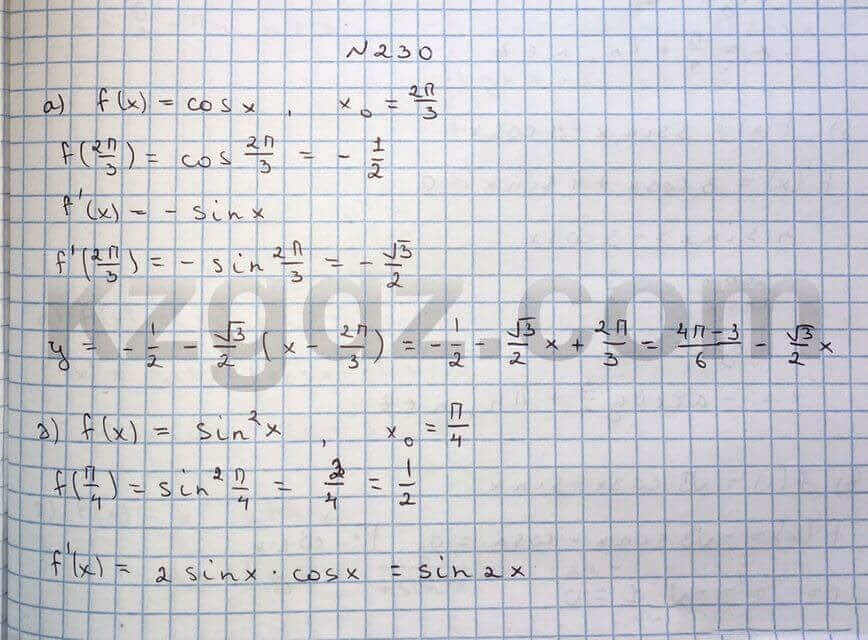 N230
a) f(x) = cos x , x₀ = 2π/3
f(2π/3) = cos 2π/3 = - 1/2
f'(x) = - sin x
f'(2π/3) = - sin 2π/3 = - √3/2
kzgdz.com
y = - 1/2 - √3/2 (x - 2π/3) = - 1/2 - √3/2 x + 2π/3 = 4π-3/6 - √3/2 x
д) f(x) = sin²x , x₀ = π/4
f(π/4) = sin² π/4 = 2/4 = 1/2
f'(x) = 2 sin x · cos x = sin 2x